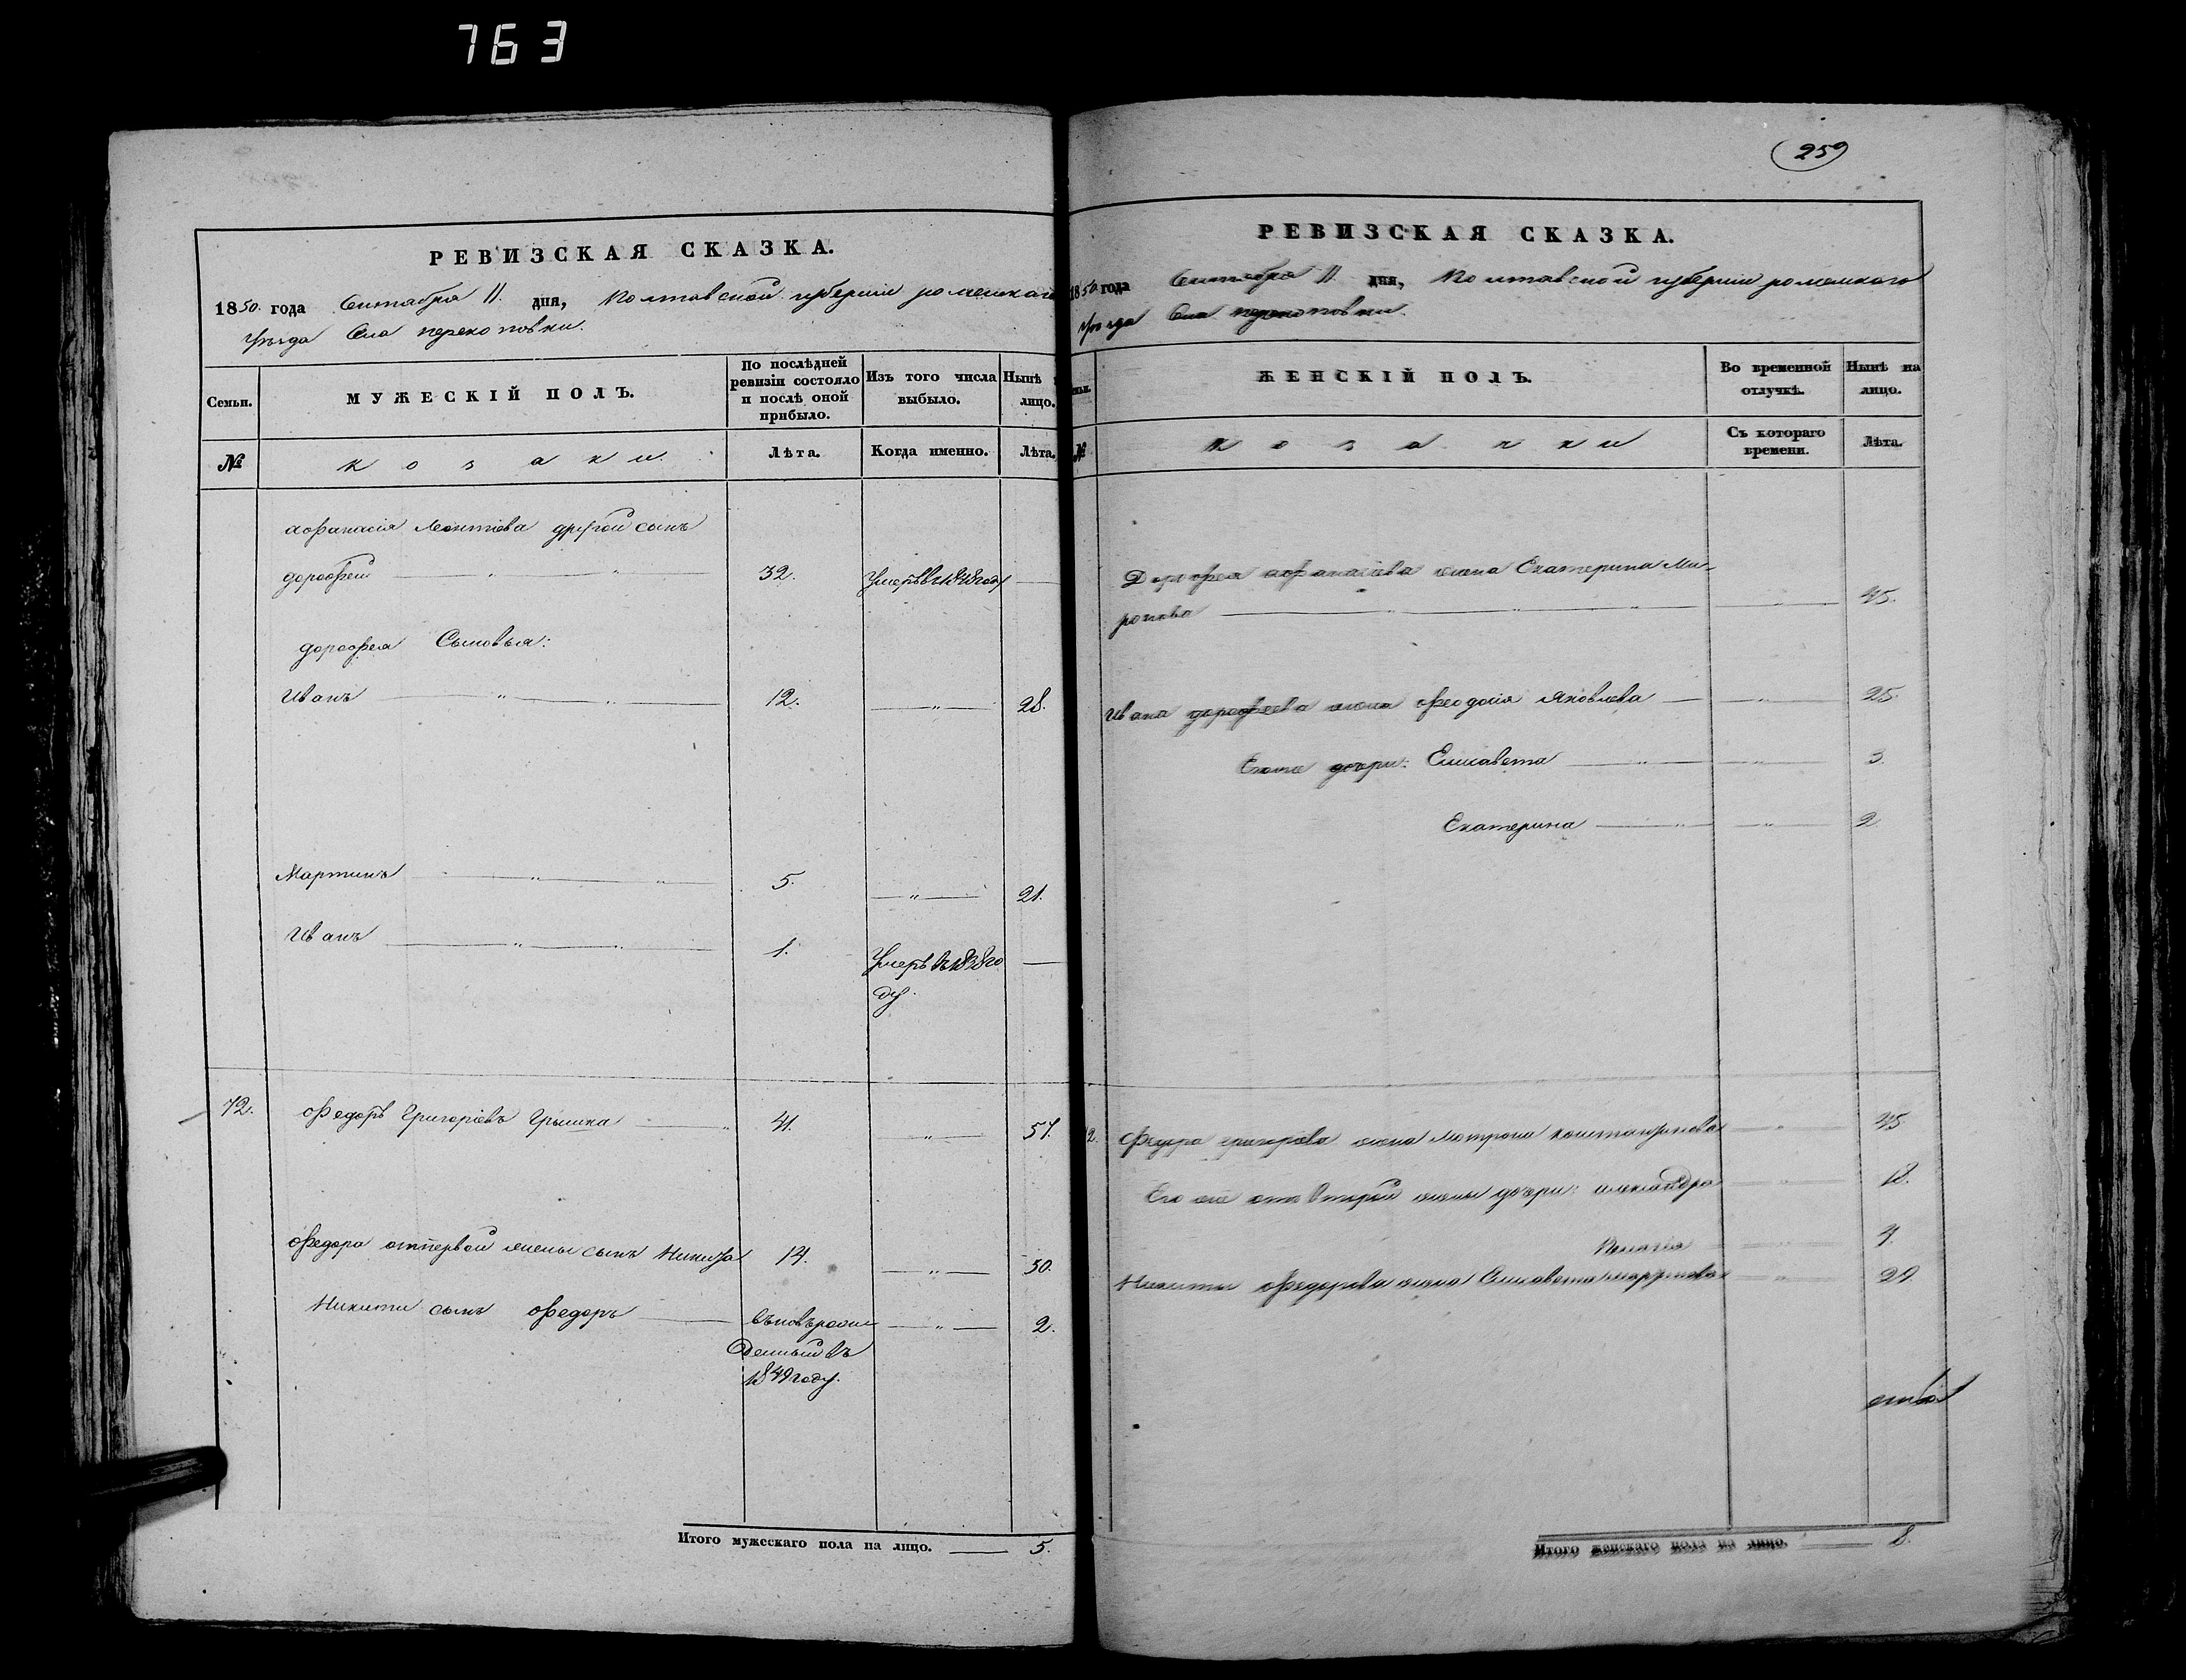 763
РЕВИЗСКАЯ СКАЗКА.
1850. года Сентября 11. дня, Полтавской губерніи роменскаго
уѣзда Села перекоповки.
Семьи.
МУЖЕСКІЙ ПОЛЪ.
По послѣдней ревизіи состояло и послѣ оной прибыло.
Изъ того числа выбыло.
Нынѣ
лицо.
№
козаки.
Лѣта.
Когда именно.
Лѣта.
афанасія Леонтіева другой сынъ
дорофей 32. Умеръ в 1848 году
дорофея Сыновья:
Иванъ 12. 28.
Мартинъ 5. 21.
Иванъ 1. Умеръ въ 1838 го
ду.
72. Федоръ Григоріевъ Грышка 41. 57.
Федора отпервой жены сынъ Никита 14. 30.
Никиты сынъ Федоръ вновьрож 2.
денный въ
1849 году.
Итого мужескаго пола на лицо. 5.
259
РЕВИЗСКАЯ СКАЗКА.
1850 года Сентября 11. дня, Полтавской губерніи роменскаго
уѣзда Села перекоповки.
ЖЕНСКІЙ ПОЛЪ.
Во временной отлучкѣ.
Нынѣ на лицо.
№
козачки
Съ котораго времени.
Лѣта.
Дорофея афанасіева жена Екатерина Ми-
ронова 45.
Ивана дорофеева жена Феодосія Яковлева 25.
Егоже дочери: Елисавета 3.
Екатерина 2
2. Федора григоріева жена Мотрона константинова 45
Его же отъ второй жены дочери: александра 12.
Пелагія
Никиты Федорова жена Елисавета 29.
Итого женскаго пола на лицо. 8.